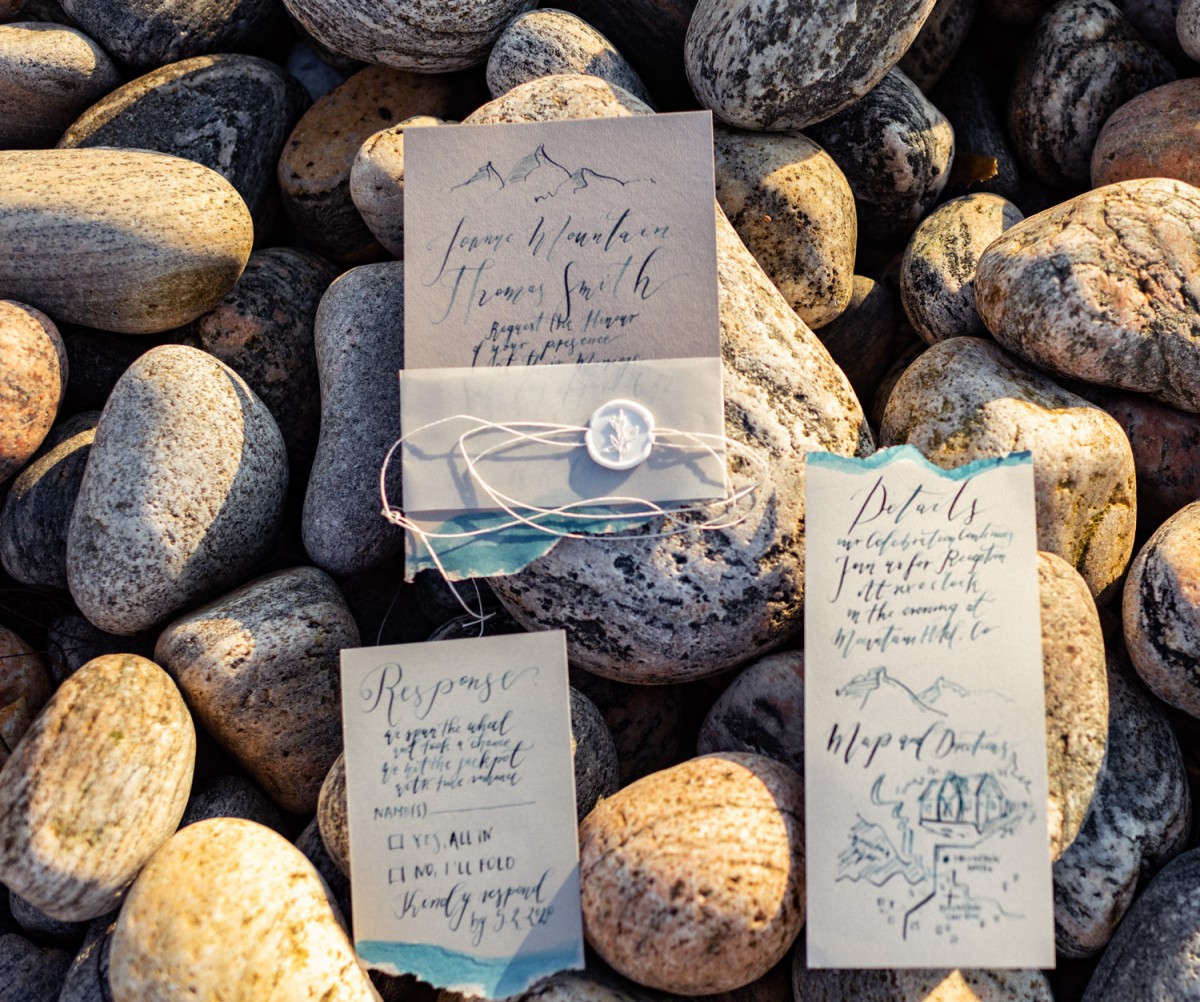 Joanne Mountain
Thomas Smith
Request the Honour
of your presence
at their
Response
we spun the wheel
and took a chance
we hit the jackpot
with true romance
NAME(S)
YES, ALL IN
NO, I'LL FOLD
Kindly respond
by 5.2.2020
Details
our Celebration Continues
Join us for Reception
At six o'clock
in the evening at
Mountain Hotel, Co
Map and Directions